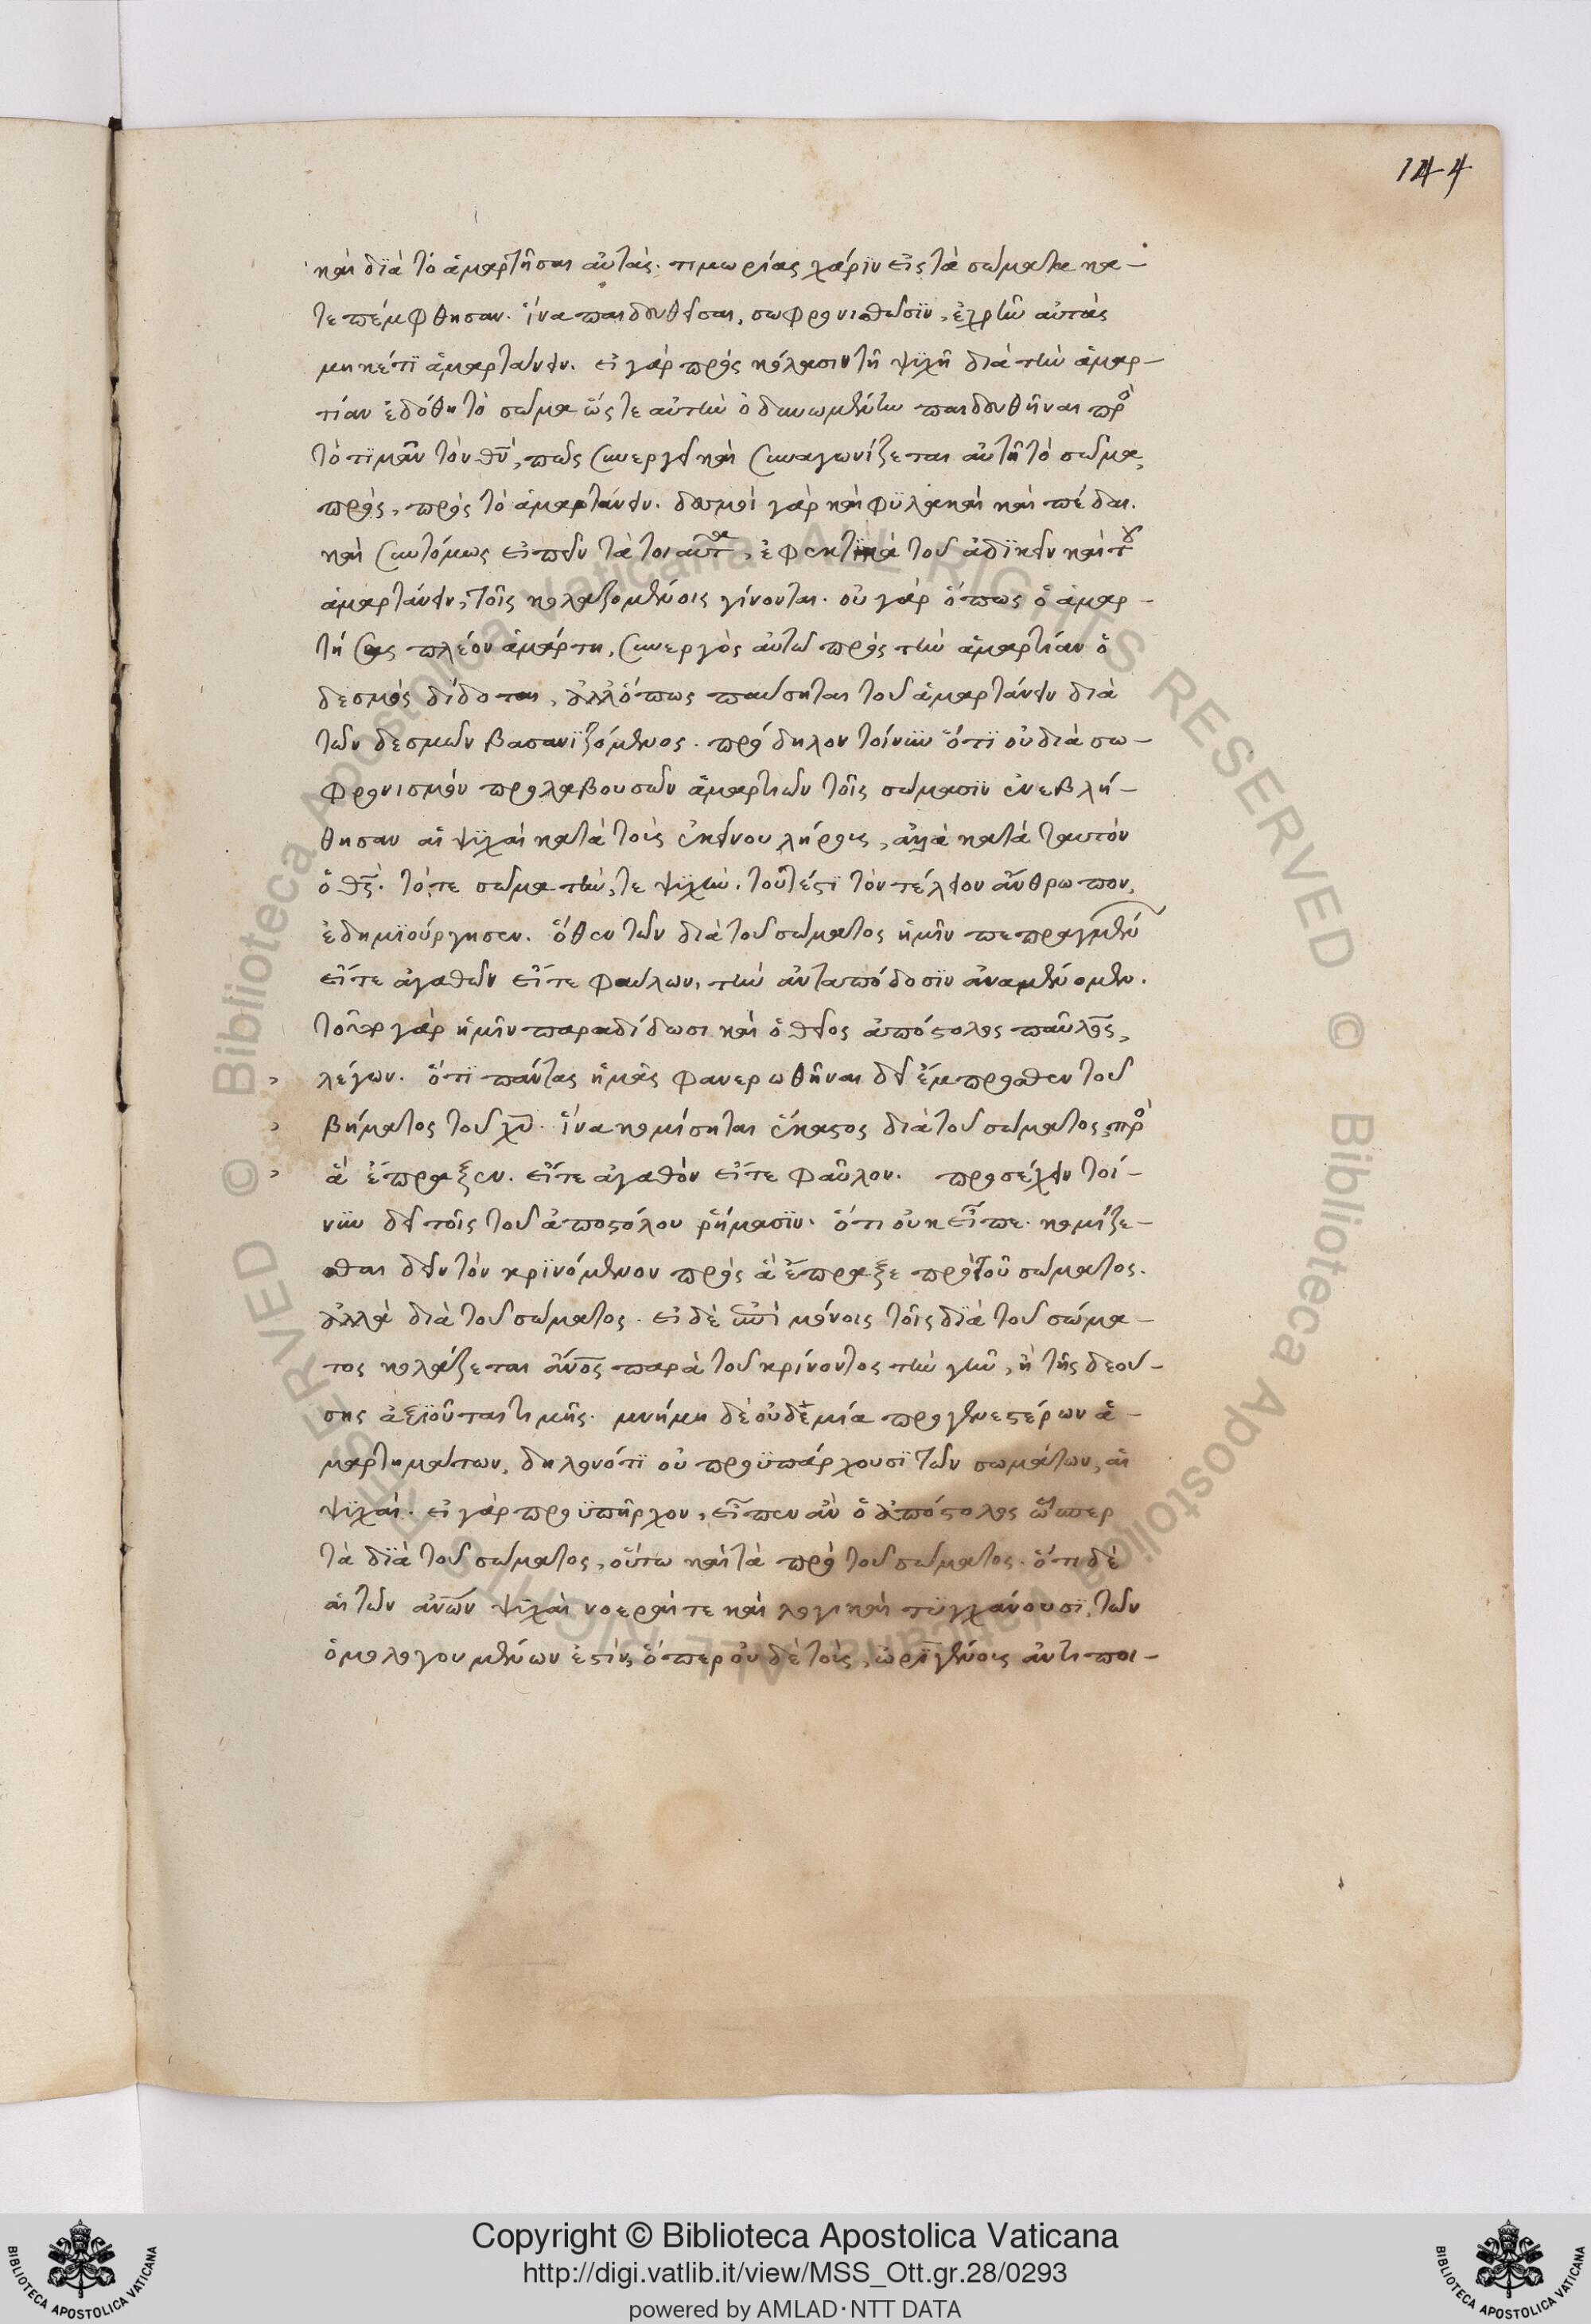 144
καὶ διὰ τὸ ἁμαρτῆσαι αὐτάς. τιμωρίας χάριν εἰς τὰ σώματα κα-
τεπέμφθησαν. ἵνα παιδευθεῖσαι, σωφρονισθῶσϊν, ἐχρῆν αὐτὰς
μηκέτϊ ἁμαρτάνειν. εἰ γὰρ πρὸς κόλασιν τῇ ψϋχῇ διὰ τὴν ἁμαρ-
τίαν ἐδόθη τὸ σῶμα ὥστε αὐτὴν ὀδυνωμένην παιδευθῆναι πρὸ
τὸ τϊμᾶν τὸν θν̄, πῶς συνεργεῖ καὶ συναγωνίζεται αὐτῇ τὸ σῶμα,
πρὸς, πρὸς τὸ ἁμαρτάνειν. δεσμοὶ γὰρ καὶ φϋλακαὶ καὶ πέδαι.
καὶ συντόμως εἰπεῖν τὰ τοιαῦτα, ἐφεκτϊκὰ τοῦ ἀδϊκεῖν καὶ τοῦ
ἁμαρτάνειν, τοῖς κολαζομένοις γίνονται. οὐ γὰρ ὅπως ὁ ἁμαρ-
τήσας πλέον ἁμάρτῃ, συνεργὸς αὐτῷ πρὸς τὴν ἁμαρτίαν ὁ
δεσμὸς δίδοται, ἀλλ' ὅπως παύσηται τοῦ ἁμαρτάνειν διὰ
τῶν δεσμῶν βασανϊζόμενος. πρόδηλον τοίνυν ὅτϊ οὐ διὰ σω-
φρονισμὸν προλαβουσῶν ἁμαρτιῶν τοῖς σώμασϊν ἐνεβλή-
θησαν αἱ ψϋχαὶ κατὰ τοὺς ἐκείνου λήρους, ἀλλὰ κατὰ ταυτὸν
ὁ θς̄. τό τε σῶμα τήν, τε ψϋχήν. τουτέστϊ τὸν τέλειον ἄνθρωπον,
ἐδημϊούργησεν. ὅθεν τῶν διὰ τοῦ σώματος ἡμῖν πεπραγμέν
εἴτε ἀγαθῶν εἴτε φαύλων, τὴν ἀνταπόδοσϊν ἀναμένομεν.
τοῦτο γὰρ ἡμῖν παραδίδωσι καὶ ὁ θεῖος ἀπόστολος παῦλος,
λέγων. ὅτϊ πάντας ἡμᾶς φανερωθῆναι δεῖ ἔμπροσθεν τοῦ
βήματος τοῦ χῡ. ἵνα κομίσηται ἕκαστος διὰ τοῦ σώματος, πρὸ
ἃ ἔπραξεν. εἴτε ἀγαθὸν εἴτε φαῦλον. προσέχειν τοί-
νυν δεῖ τοῖς τοῦ ἀποστόλου ῥήμασϊν. ὅτι οὐκ εἶπε. κομίζε-
σθαι δεῖν τὸν κρϊνόμενον πρὸς ἃ ἔπραξε πρὸ τοῦ σώματος.
ἀλλὰ διὰ τοῦ σώματος. εἰ δὲ ἐπὶ μόνοις τοῖς δϊὰ τοῦ σώμα-
τος κολάζεται ἄνος παρὰ τοῦ κρίνοντος τὴν γῆν, ἢ τῆς δεού-
σης ἀξϊοῦται τιμῆς. μνήμη δὲ οὐδεμία προγενεστέρων ἁ-
μαρτημάτων, δηλονότϊ οὐ προϋπάρχουσϊ τῶν σωμάτων, αἱ
ψϋχαί. εἰ γὰρ προϋπῆρχον, εἶπεν ἂν ὁ ἀπόστολος ὥσπερ
τὰ δϊὰ τοῦ σώματος, οὕτω καὶ τὰ πρὸ τοῦ σώματος. ὅτι δὲ
αἱ τῶν ἀνων ψϋχαὶ νοεραί τε καὶ λογικαὶ τϋγχάνουσϊ, τῶν
ὁμολογουμένων ἐστίν, ὅπερ οὐδὲ τοῖς, ὠρϊγένους ἀντιποι-
Copyright © Biblioteca Apostolica Vaticana
http://digi.vatlib.it/view/MSS_Ott.gr.28/0293
powered by AMLAD·NTT DATA